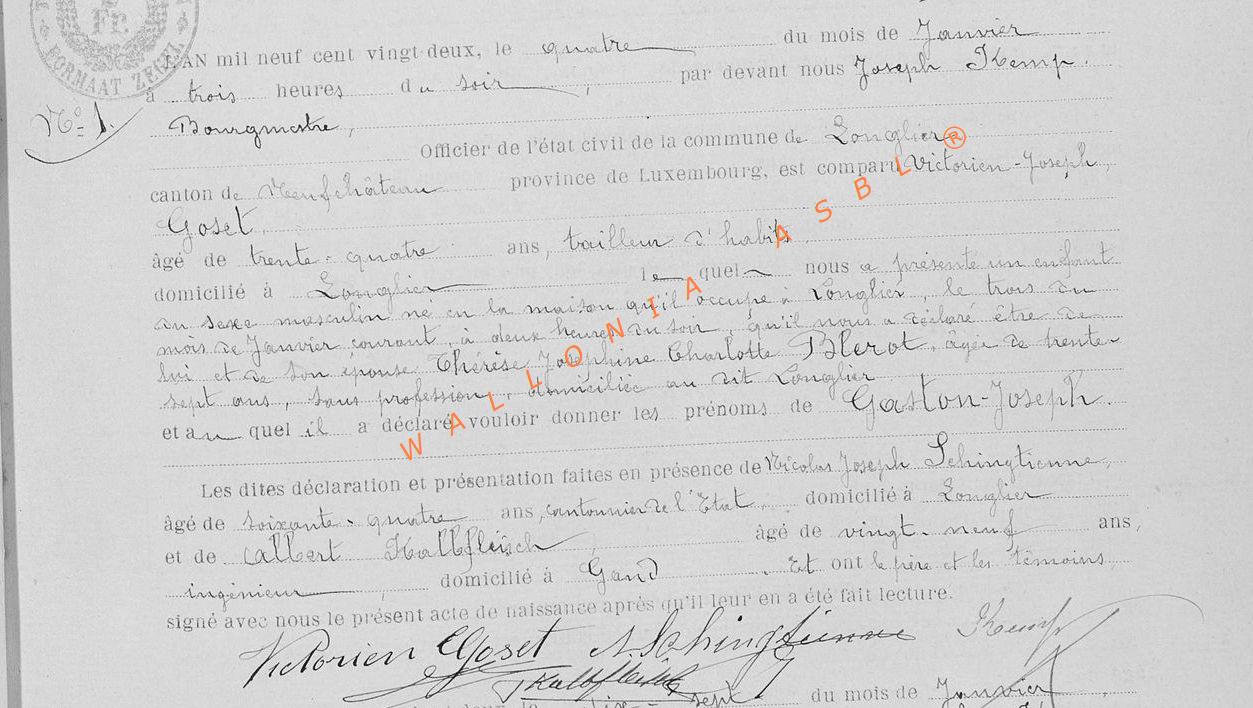 FORMAAT ZEGEL
L'AN mil neuf cent vingt-deux, le quatre du mois de Janvier
à trois heures du soir, par devant nous Joseph Kemp.
No 1.
Bourgmestre,
Officier de l'état civil de la commune de Longlier
canton de Neufchâteau province de Luxembourg, est comparu Victorien-Joseph
Goset,
âgé de trente-quatre ans, tailleur d'habits,
domicilié à Longlier lequel nous a présenté un enfant
du sexe masculin né en la maison qu'il occupe à Longlier, le trois du
mois de Janvier courant, à deux heures du soir, qu'il nous a déclaré être de
lui et de son épouse Thérèse Joséphine Charlotte Blerot, âgée de trente-
sept ans, sans profession, domiciliée au dit Longlier
et au quel il a déclaré vouloir donner les prénoms de Gaston-Joseph.
Les dites déclaration et présentation faites en présence de Nicolas Joseph Schingtienne,
âgé de soixante-quatre ans, cantonnier de l'Etat, domicilié à Longlier
et de Albert Kalbfleisch, âgé de vingt-neuf ans,
ingénieur, domicilié à Gand. Et ont le père et les témoins,
signé avec nous le présent acte de naissance après qu'il leur en a été fait lecture.
Victorien Goset N. Schingtienne Kemp
Kalbfleisch
sept du mois de Janvier
WALLONIA ASBL®